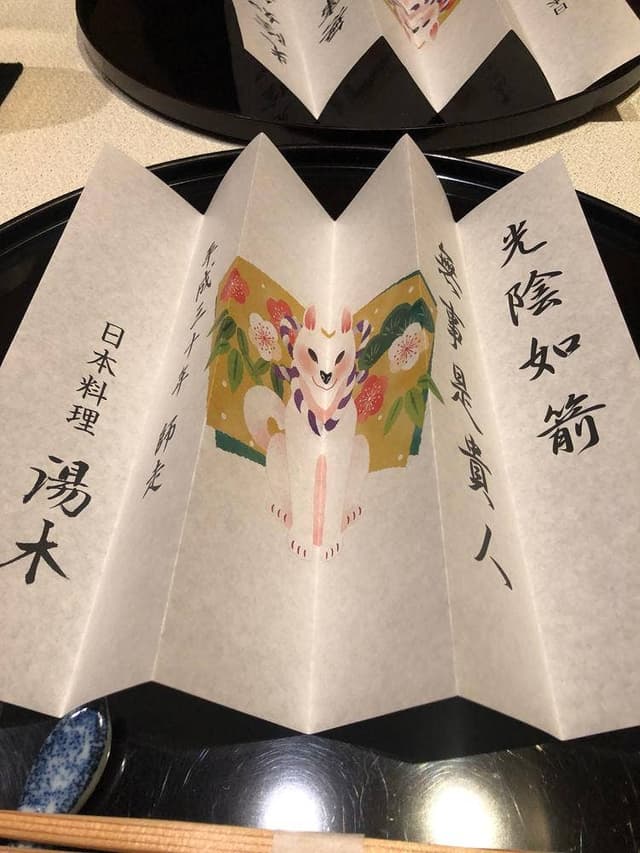 光陰如箭
無事是貴人
平成三十年 師走
日本料理
湯木